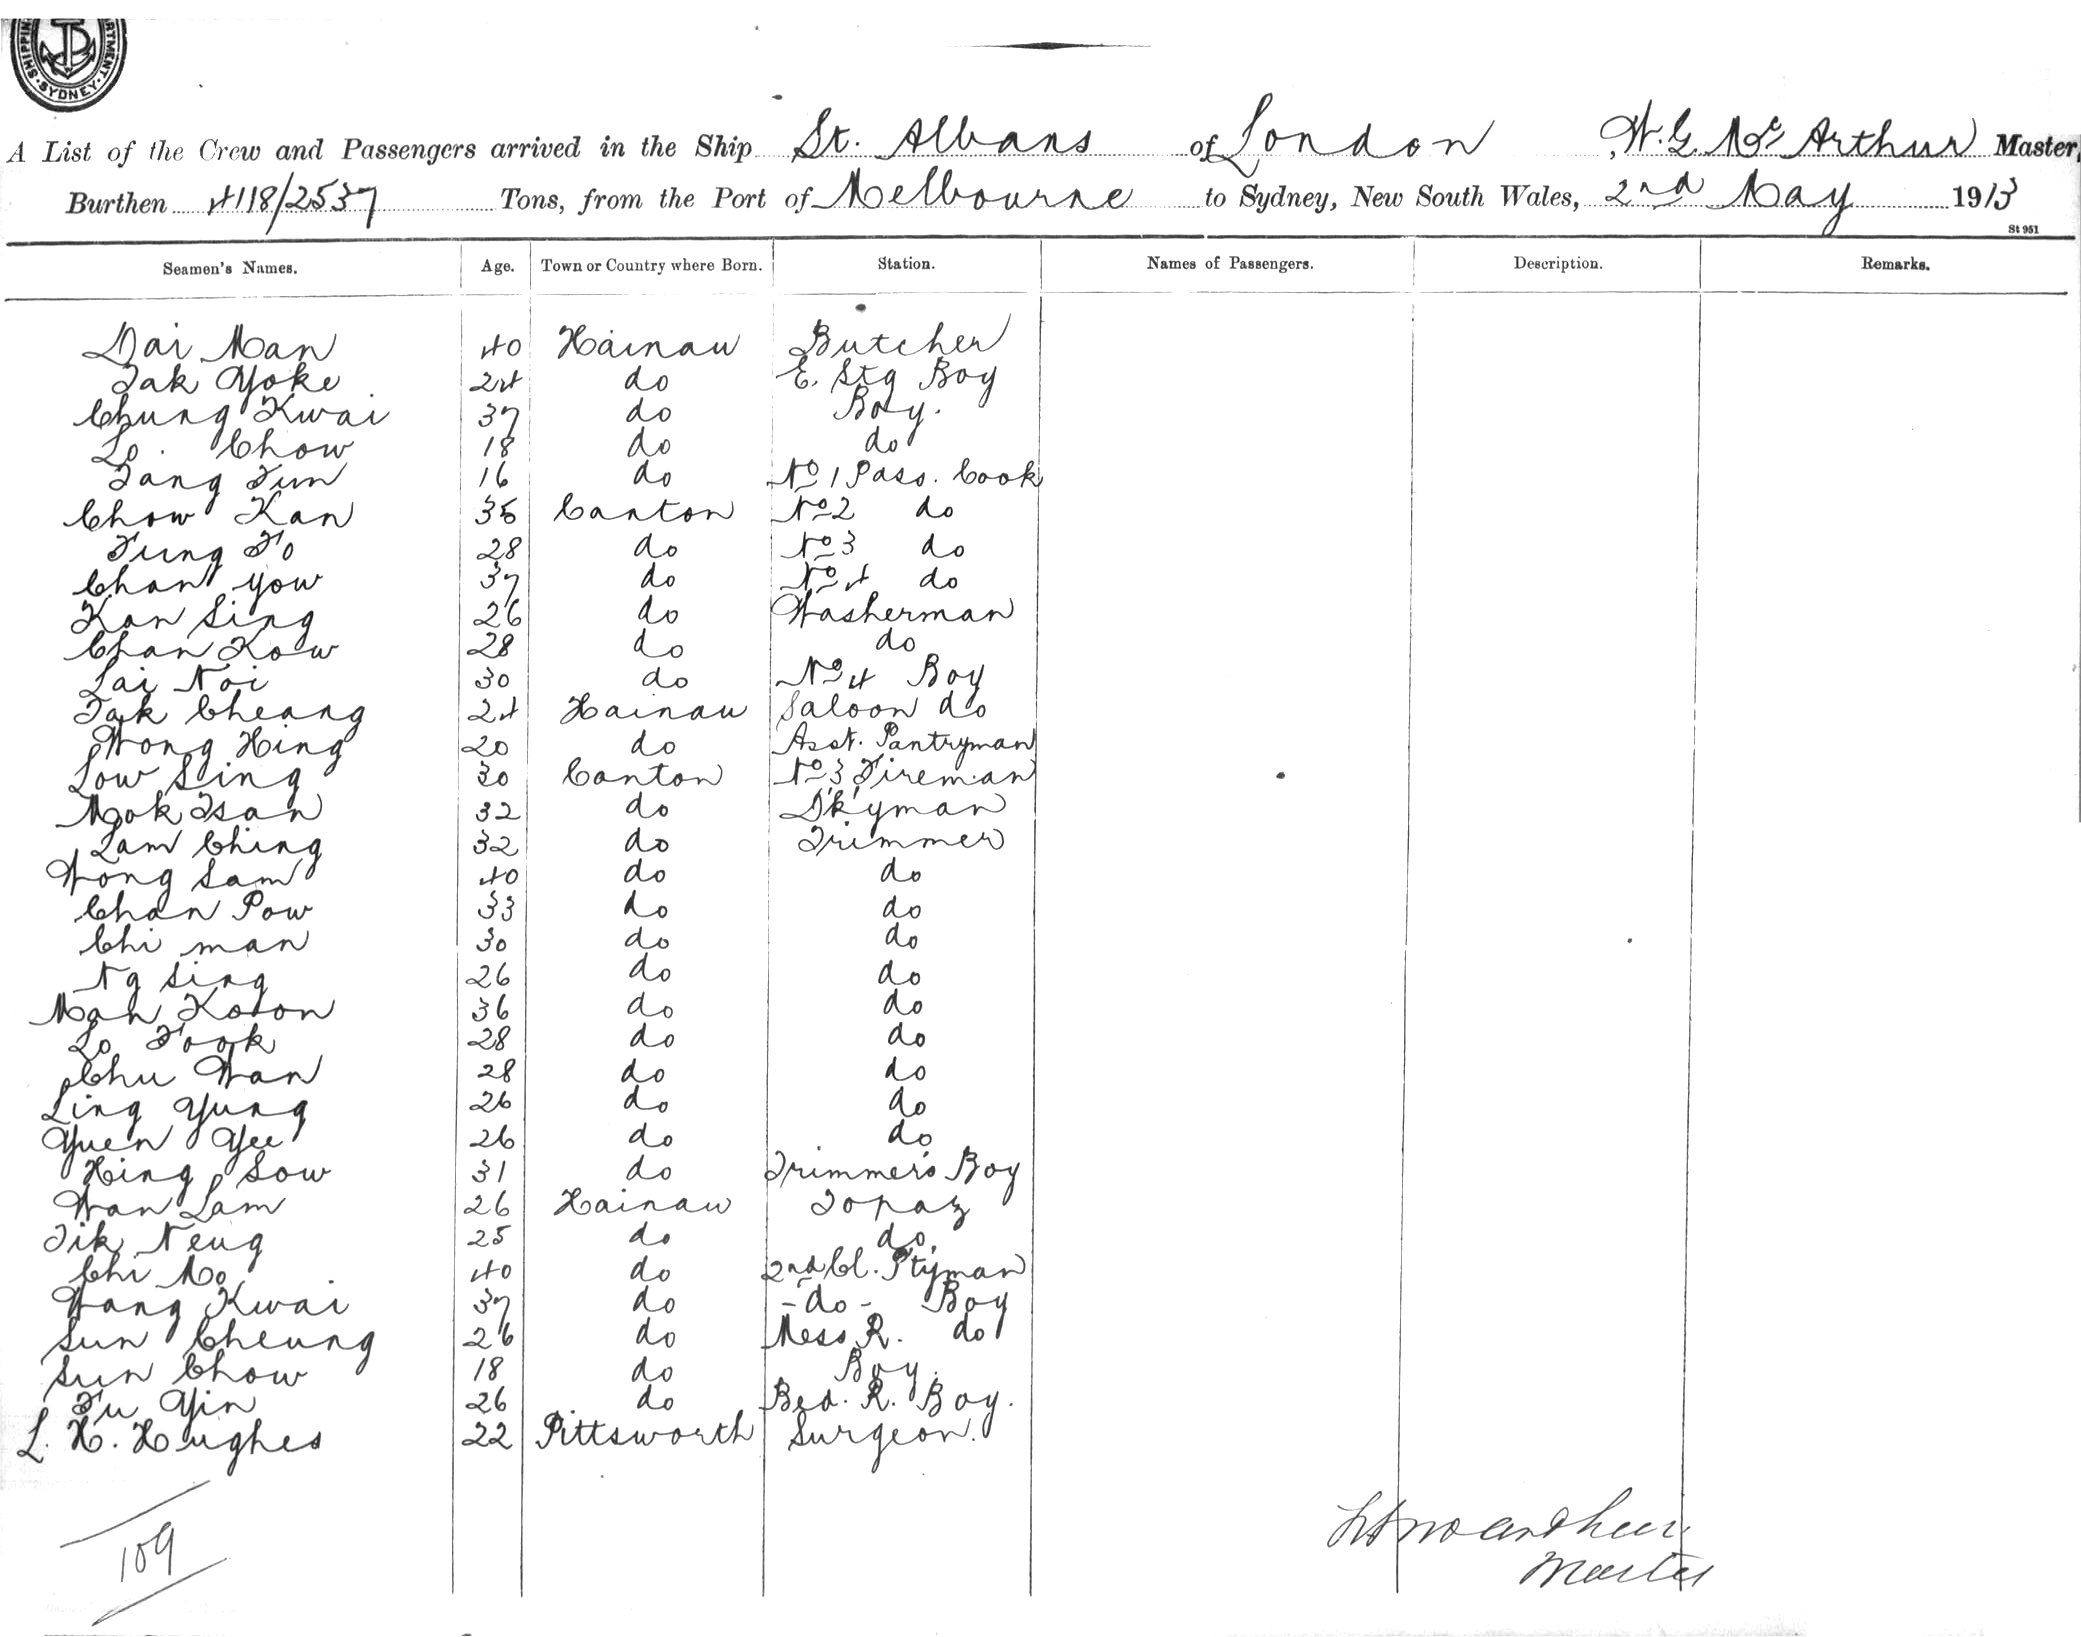 SHIPPING DEPARTMENT · SYDNEY ·
A List of the Crew and Passengers arrived in the Ship St. Albans of London, W. G. McArthur Master,
Burthen 4118/2537 Tons, from the Port of Melbourne to Sydney, New South Wales, 2nd May 1913
St 951
Seamen's Names. Age. Town or Country where Born. Station. Names of Passengers. Description. Remarks.
Dai Man 40 Hainau Butcher
Tak Yoke 24 do E. Stg Boy
Chung Kwai 37 do Boy.
Lo Chow 18 do do
Tang Fun 16 do No 1 Pass. Cook
Chow Kan 35 Canton No 2 do
Fung Fo 28 do No 3 do
Chan You 37 do No 4 do
Kan Sing 26 do Washerman
Chan Kow 28 do do
Lai Noi 30 do No 4 Boy
Tak Cheang 24 Hainau Saloon do
Wong Hing 20 do Asst. Pantryman
Low Sing 30 Canton No 3 Fireman
Mok Tsan 32 do D'k'yman
Lam Ching 32 do Trimmer
Wong Sam 40 do do
Chan Pow 33 do do
Chi man 30 do do
Ng Sing 26 do do
Mah 36 do do
Lo Fook 28 do do
Chu Wan 28 do do
Ling Yung 26 do do
Yuen Yee 26 do do
Hing Sow 31 do Trimmers Boy
Wan Lam 26 Hainau Topaz
Tik Neug 25 do do.
Chi Mo 40 do 2nd Cl. Ptyman
Wang Kwai 37 do - do - Boy
Sun Cheung 26 do Mess R. do
Sun Chow 18 do Boy.
Fu Yin 26 do Bed. R. Boy.
L. H. Hughes 22 Pittsworth Surgeon.
109
McArthur
Master